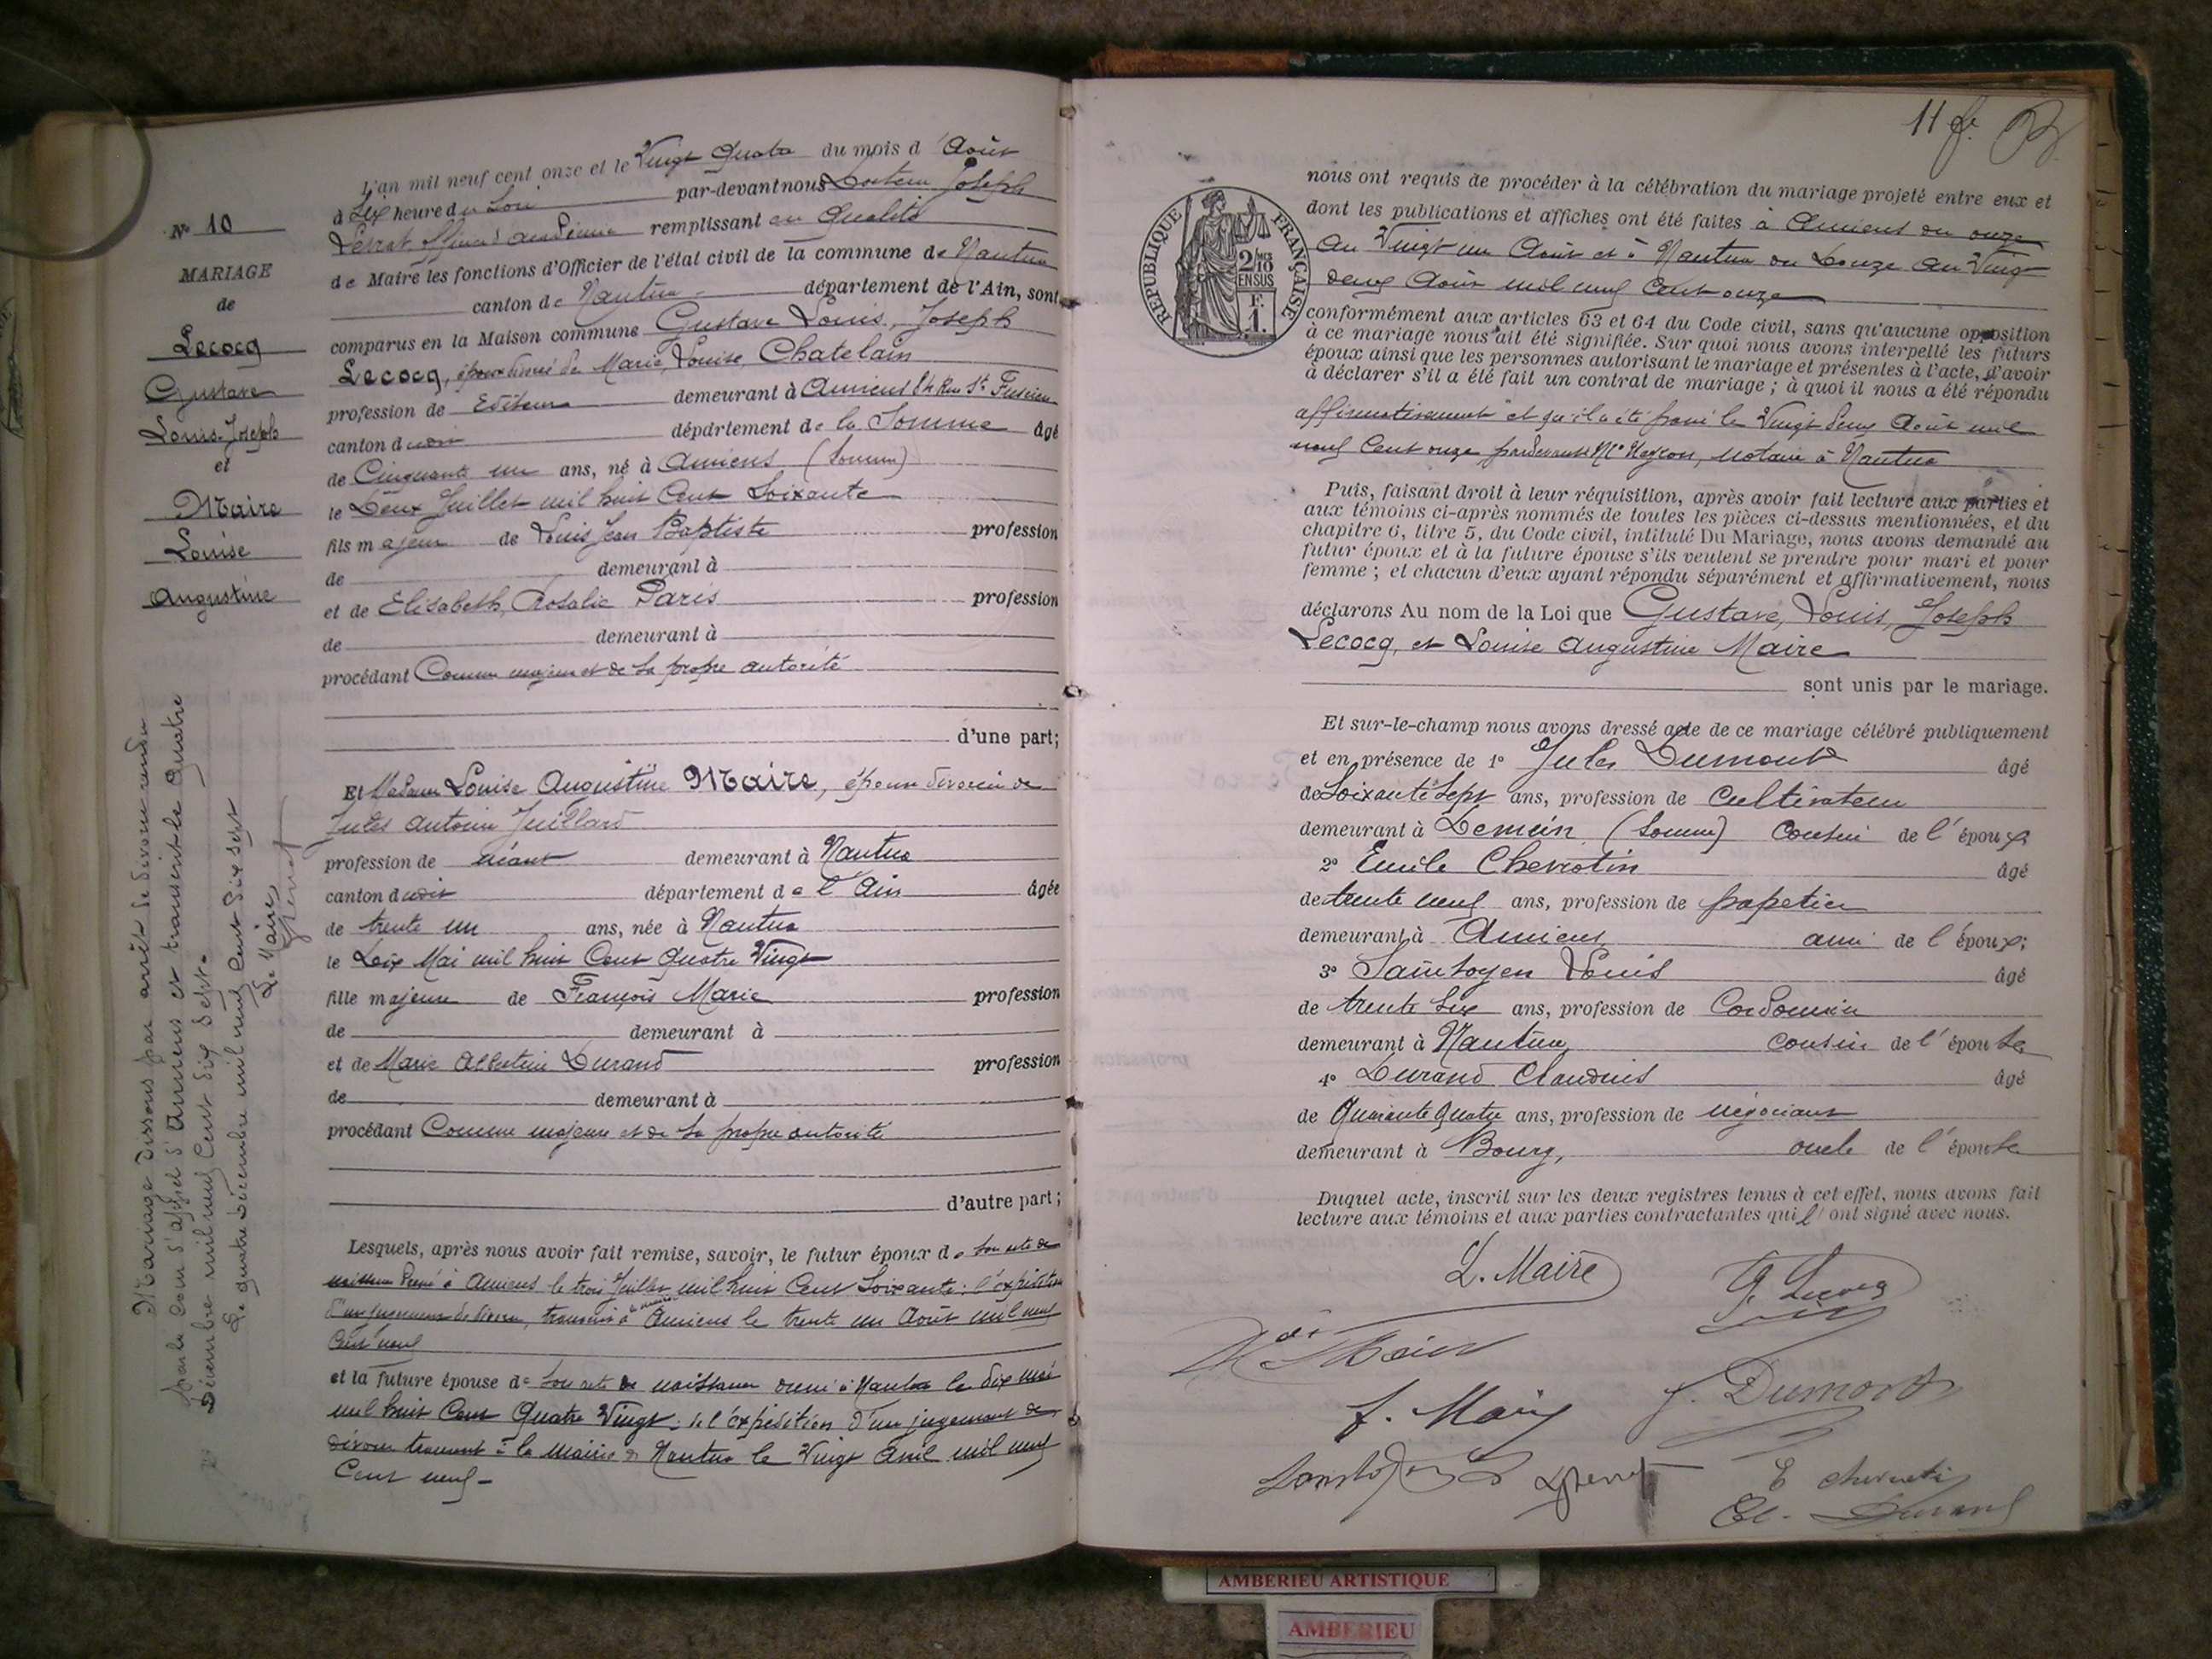 N° 10
MARIAGE
de
Lecocq
Gustave
Louis-Joseph
et
Maire
Louise
Augustine
Mariage dissous par arrêt de divorce rendu
par la Cour d'appel d'Amiens et transcrit le quatre
Décembre mil neuf Cent dix Sept.
Le quatre Décembre mil neuf Cent dix sept
Le Maire
L'an mil neuf cent onze et le Vingt Quatre du mois d'Août
à Six heure du Soir par-devant nous Docteur Joseph
officier d'académie remplissant en qualité
de Maire les fonctions d'Officier de l'état civil de la commune de Nantua
canton de Nantua département de l'Ain, sont
comparus en la Maison commune Gustave Louis, Joseph
Lecocq, époux divorcé de Marie, Louise, Chatelain
profession de Editeur demeurant à Amiens Rue St. Fuscien
canton dudit département de la Somme âgé
de Cinquante un ans, né à Amiens (Somme)
le Deux Juillet mil huit Cent Soixante
fils majeur de Louis Jean Baptiste profession
de demeurant à
et de Elisabeth, Rosalie Paris profession
de demeurant à
procédant Comme majeur et de sa propre autorité
d'une part;
Et Madame Louise Augustine Maire, épouse divorcée de
Jules Antoine Juillard
profession de néant demeurant à Nantua
canton dudit département de l'Ain âgée
de trente un ans, née à Nantua
le Dix Mai mil huit Cent Quatre Vingt
fille majeure de François Marie profession
de demeurant à
et de Marie Albertine Durand profession
de demeurant à
procédant Comme majeure et de sa propre autorité
d'autre part;
Lesquels, après nous avoir fait remise, savoir, le futur époux de son acte de
naissance dressé à Amiens le trois Juillet mil huit Cent Soixante: l'expédition
d'un jugement de divorce, transcrit à la mairie Amiens le trente un Août mil neuf
Cent neuf
et la future épouse de son acte de naissance dressé à Nantua le dix mai
mil huit Cent Quatre Vingt: de l'expédition d'un jugement de
divorce transcrit à la mairie de Nantua le Vingt Avril mil neuf
Cent neuf -
11 f.
RÉPUBLIQUE FRANÇAISE
2 MES
10
EN SUS
F.
1.
nous ont requis de procéder à la célébration du mariage projeté entre eux et
dont les publications et affiches ont été faites à Amiens du onze
au Vingt un Août et à Nantua du Douze au Vingt
deux Août mil neuf Cent onze
conformément aux articles 63 et 64 du Code civil, sans qu'aucune opposition
à ce mariage nous ait été signifiée. Sur quoi nous avons interpellé les futurs
époux ainsi que les personnes autorisant le mariage et présentes à l'acte, d'avoir
à déclarer s'il a été fait un contrat de mariage; à quoi il nous a été répondu
affirmativement et qu'il a été passé le Vingt Deux Août mil
neuf Cent onze pardevant Me notaire à Nantua
Puis, faisant droit à leur réquisition, après avoir fait lecture aux parties et
aux témoins ci-après nommés de toutes les pièces ci-dessus mentionnées, et du
chapitre 6, titre 5, du Code civil, intitulé Du Mariage, nous avons demandé au
futur époux et à la future épouse s'ils veulent se prendre pour mari et pour
femme; et chacun d'eux ayant répondu séparément et affirmativement, nous
déclarons Au nom de la Loi que Gustave, Louis, Joseph
Lecocq, et Louise Augustine Maire
sont unis par le mariage.
Et sur-le-champ nous avons dressé acte de ce mariage célébré publiquement
et en présence de 1° Jules Dumont âgé
de Soixante Sept ans, profession de Cultivateur
demeurant à Demuin (Somme) Cousin de l'époux
2° Emile Chevrotin âgé
de trente neuf ans, profession de papetier
demeurant à Amiens ami de l'époux;
3° Saintoyen Louis âgé
de trente Six ans, profession de Cordonnier
demeurant à Nantua Cousin de l'épouse
4° Durand Claudius âgé
de Quarante Quatre ans, profession de négociant
demeurant à Bourg, oncle de l'épouse
Duquel acte, inscrit sur les deux registres tenus à cet effet, nous avons fait
lecture aux témoins et aux parties contractantes qui l'ont signé avec nous.
L. Maire G. Lecocq
f. Mairy J. Dumont
E Chevrotin
Cl. Durand
AMBERIEU ARTISTIQUE
AMBERIEU